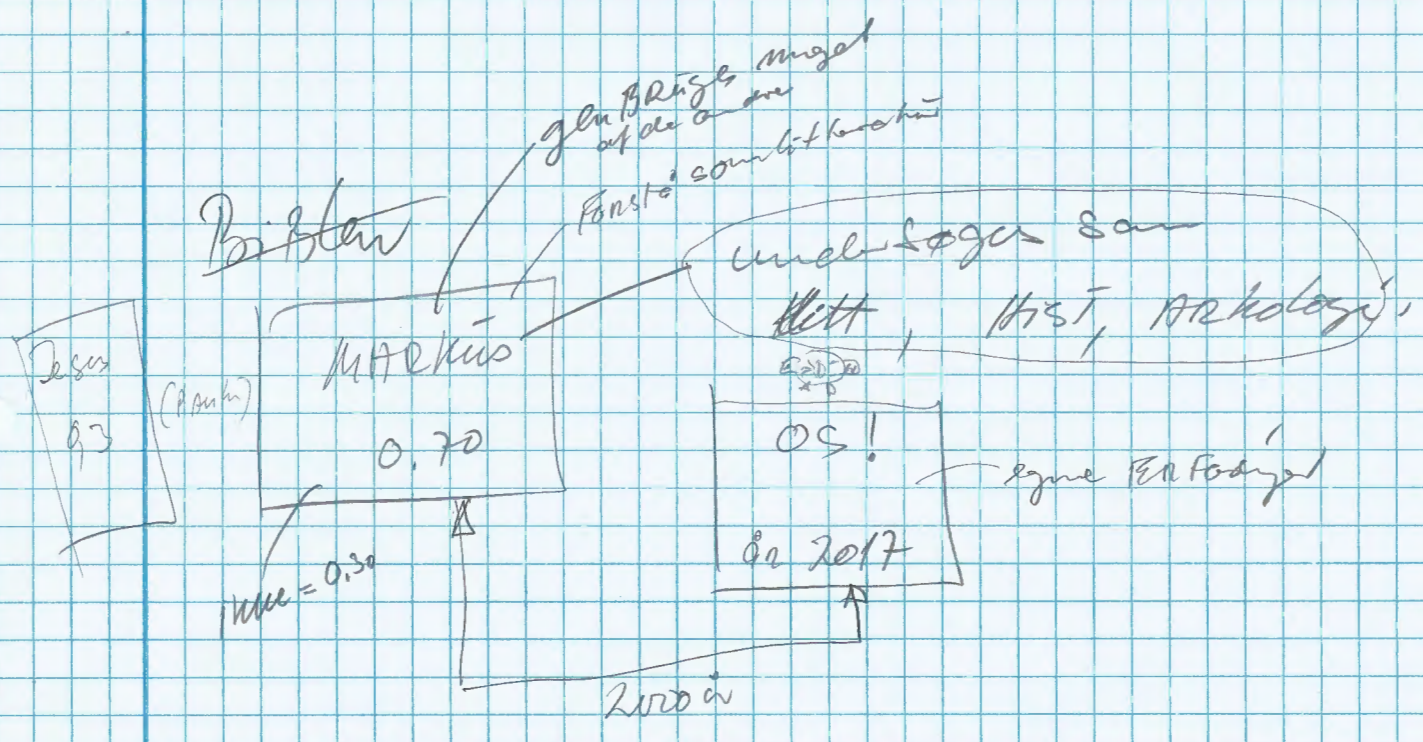 genBRuges meget
af de andre
Forstå som litteratur
Biblen
undersøges som
Litt, Hist, ARkologi.
Jesus
0,3
(Paulus)
MARKUS
0.70
OS!
år 2017
egne ERFaringer
ikke = 0,30
2000 år